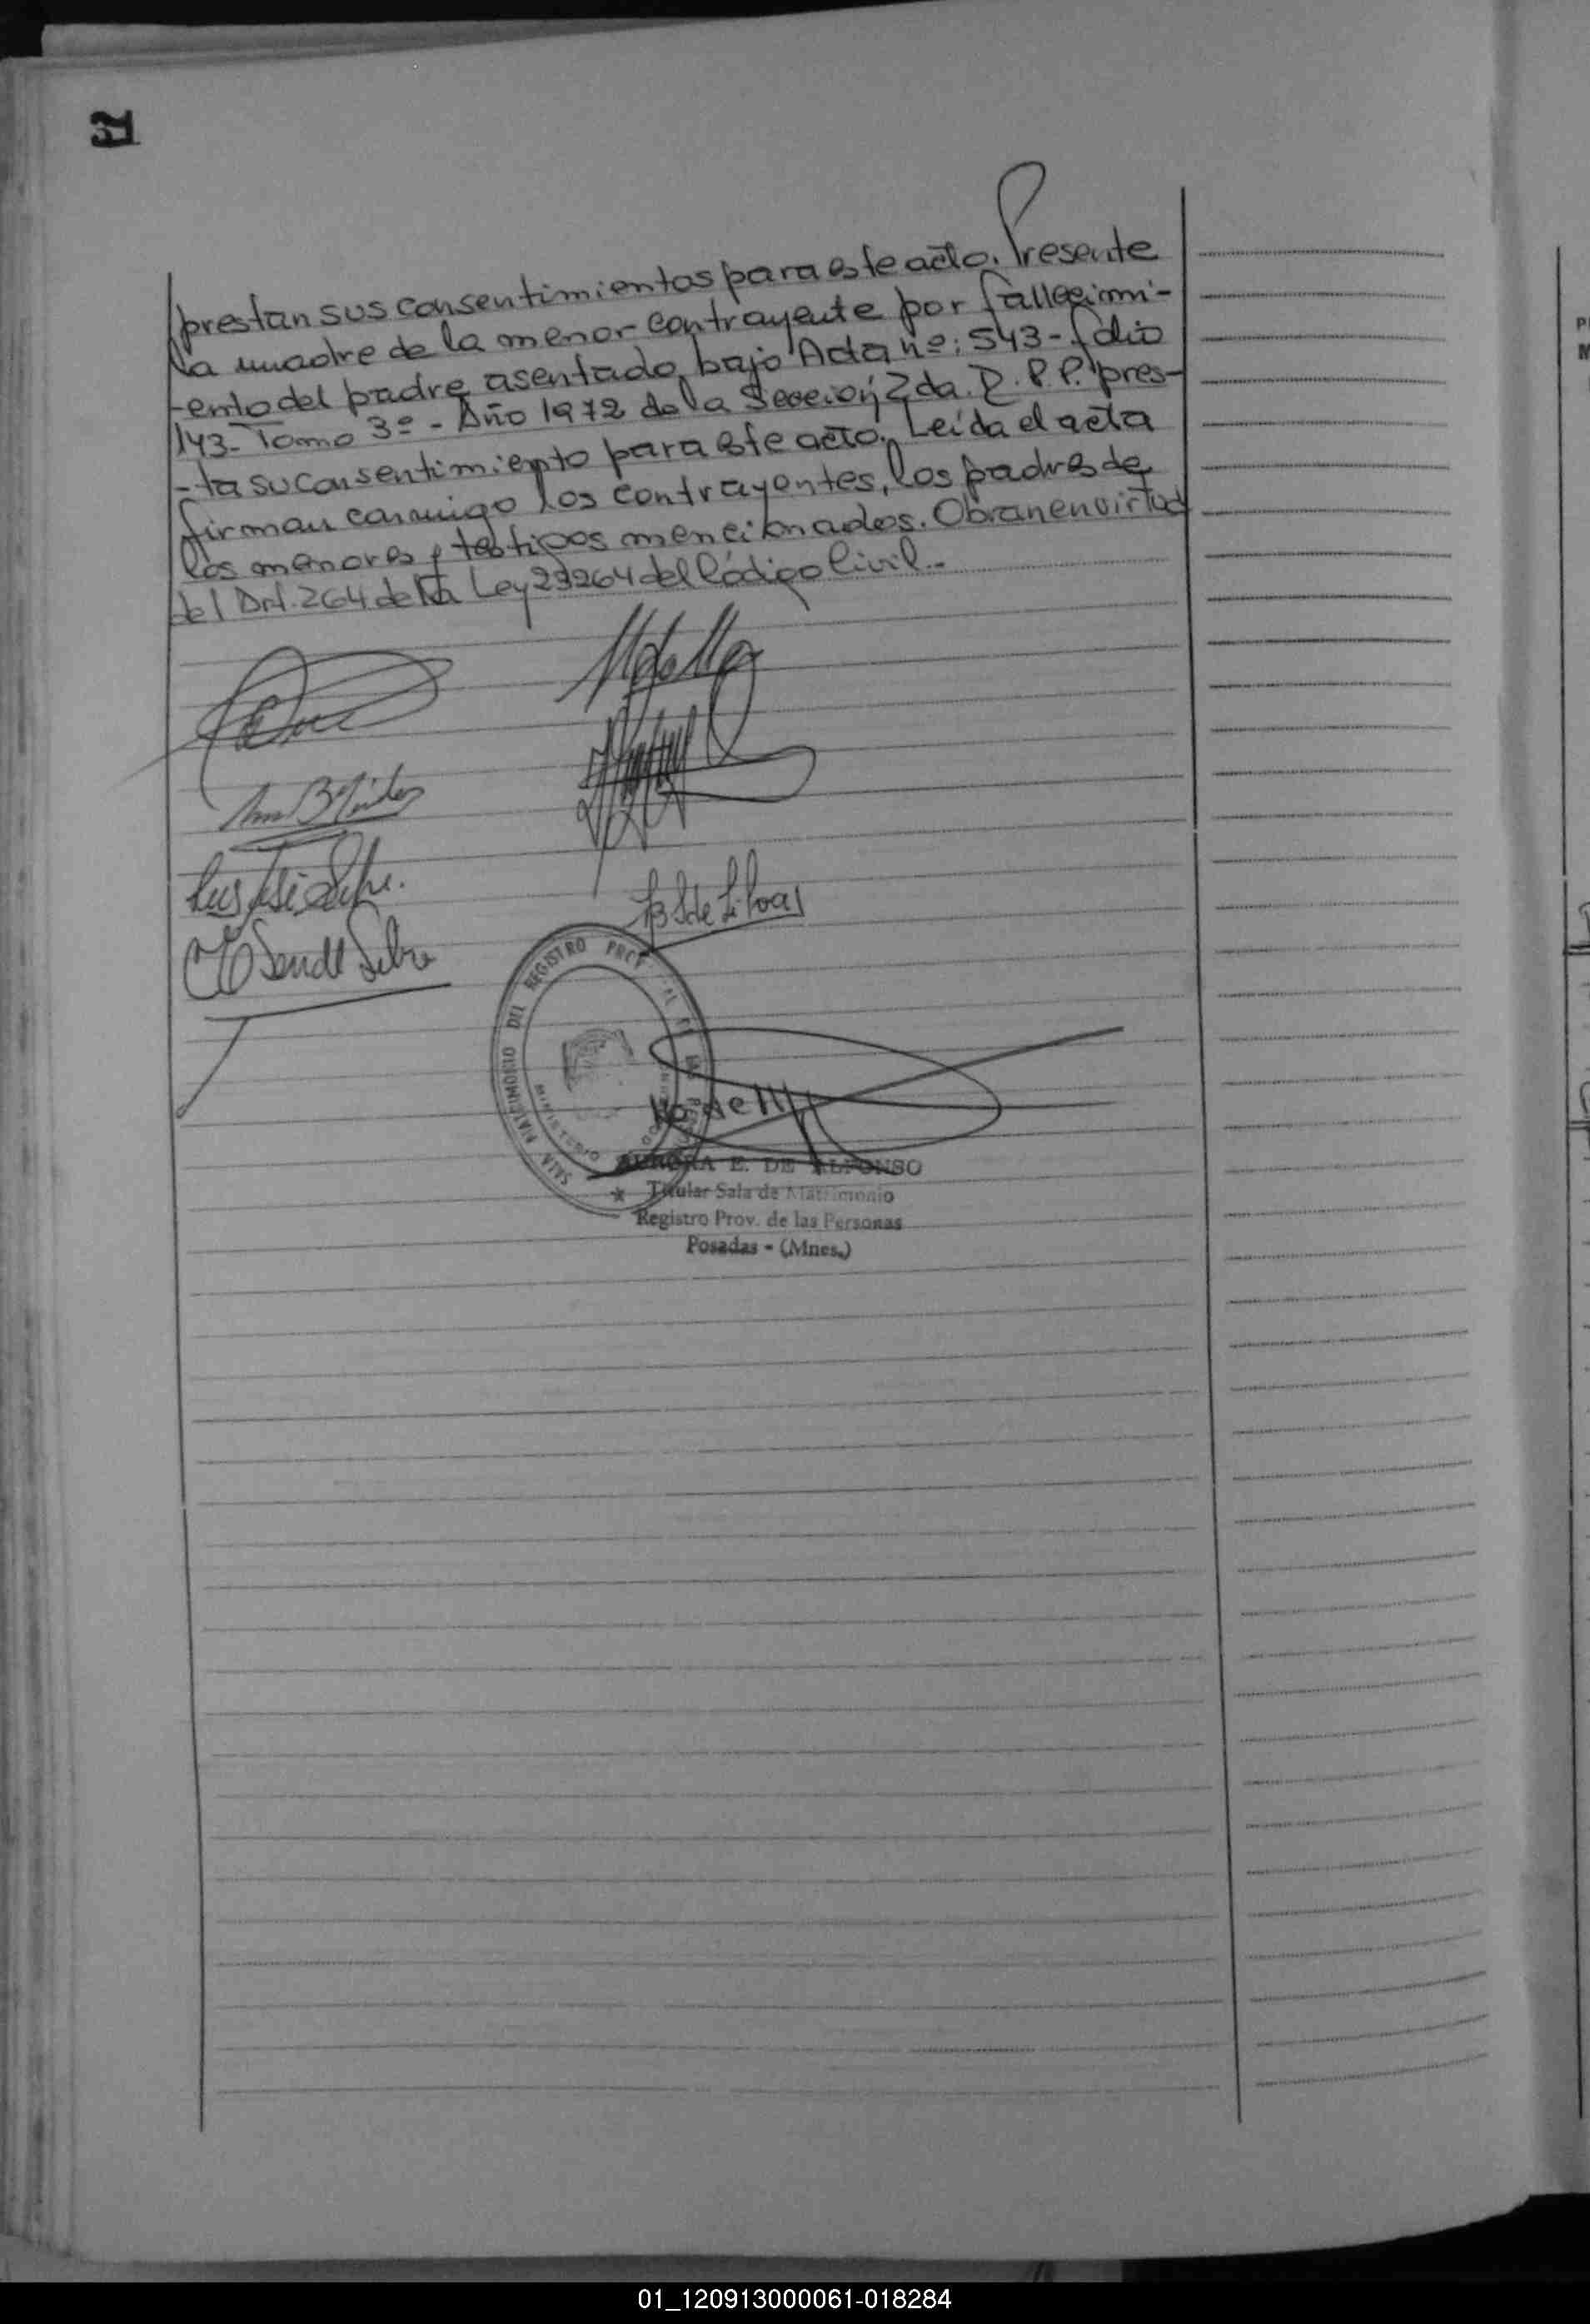 prestan sus consentimientos para este acto. Presente
la madre de la menor contrayente por fallecimi-
-ento del padre asentado bajo Acta nº: 543- folio
143- Tomo 3º - Año 1972 de la Sección 2da. R.P.P. pres-
-ta su consentimiento para este acto. Leída el acta
firman conmigo los contrayentes, los padres de
los menores y testigos mencionados. Obran en virtud
del Art. 264 de la Ley 23264 del Código Civil.-
SALA MATRIMONIO DEL REGISTRO
MINISTERIO
AURORA E. DE ALFONSO
Titular Sala de Matrimonio
Registro Prov. de las Personas
Posadas - (Mnes.)
01_120913000061-018284